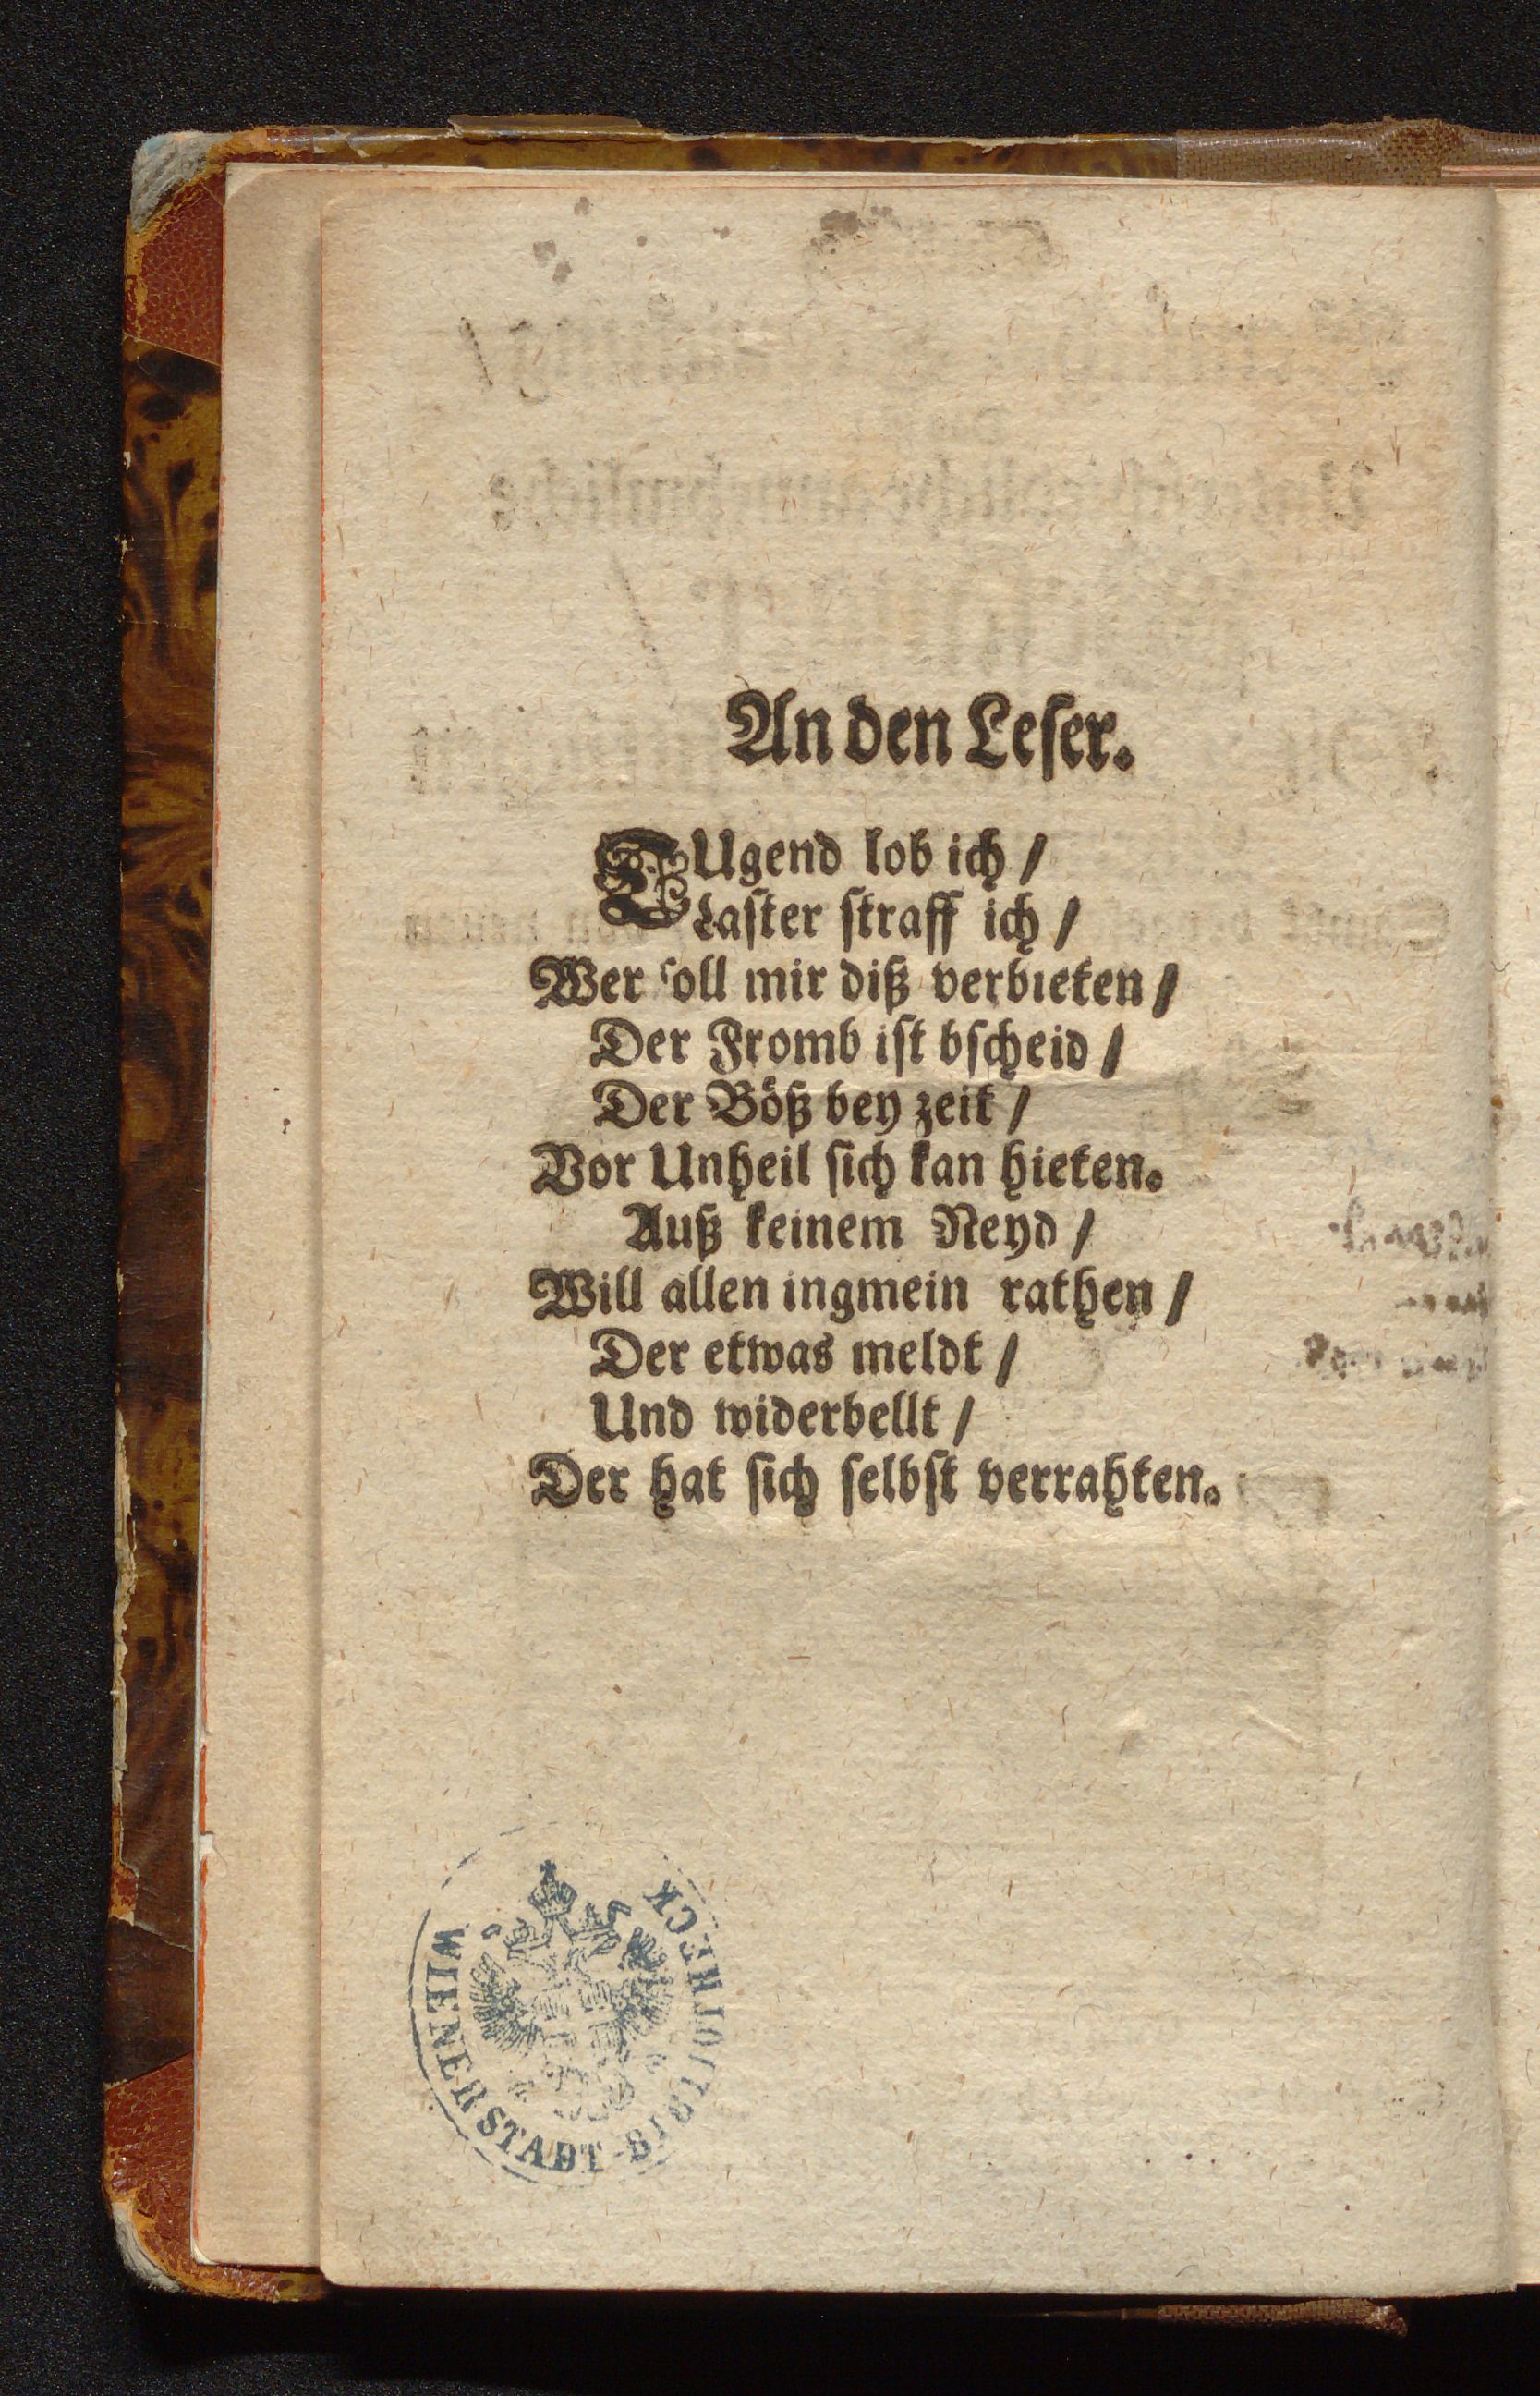 An den Leser.
TUgend lob ich /
Laster straff ich /
Wer soll mir diß verbieten /
Der Fromb ist bscheid /
Der Böß bey zeit /
Vor Unheil sich kan hieten.
Auß keinem Neyd /
Will allen ingmein rathen /
Der etwas meldt /
Und widerbellt /
Der hat sich selbst verrahten.
WIENER STADT-BIBLIOTHECK